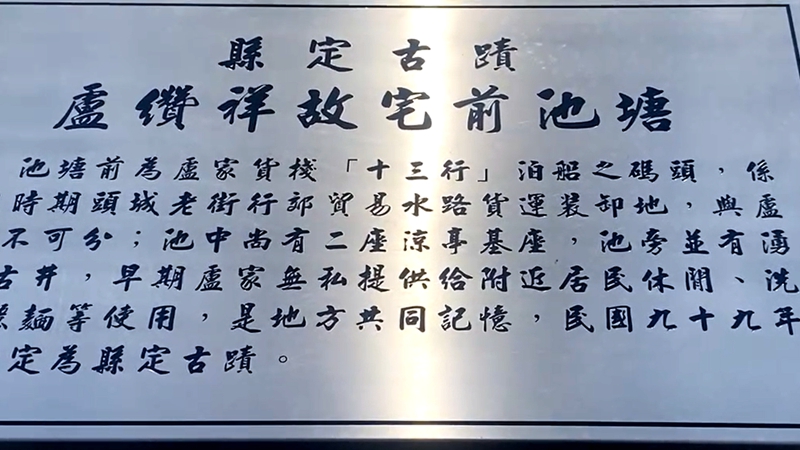 縣定古蹟
盧纘祥故宅前池塘
池塘前為盧家貨棧「十三行」泊船之碼頭，係
時期頭城老街行郊貿易水路貨運裝卸地，與盧
不可分；池中尚有二座涼亭基座，池旁並有湧
古井，早期盧家無私提供給附近居民休閒、洗
麵等使用，是地方共同記憶，民國九十九年
定為縣定古蹟。